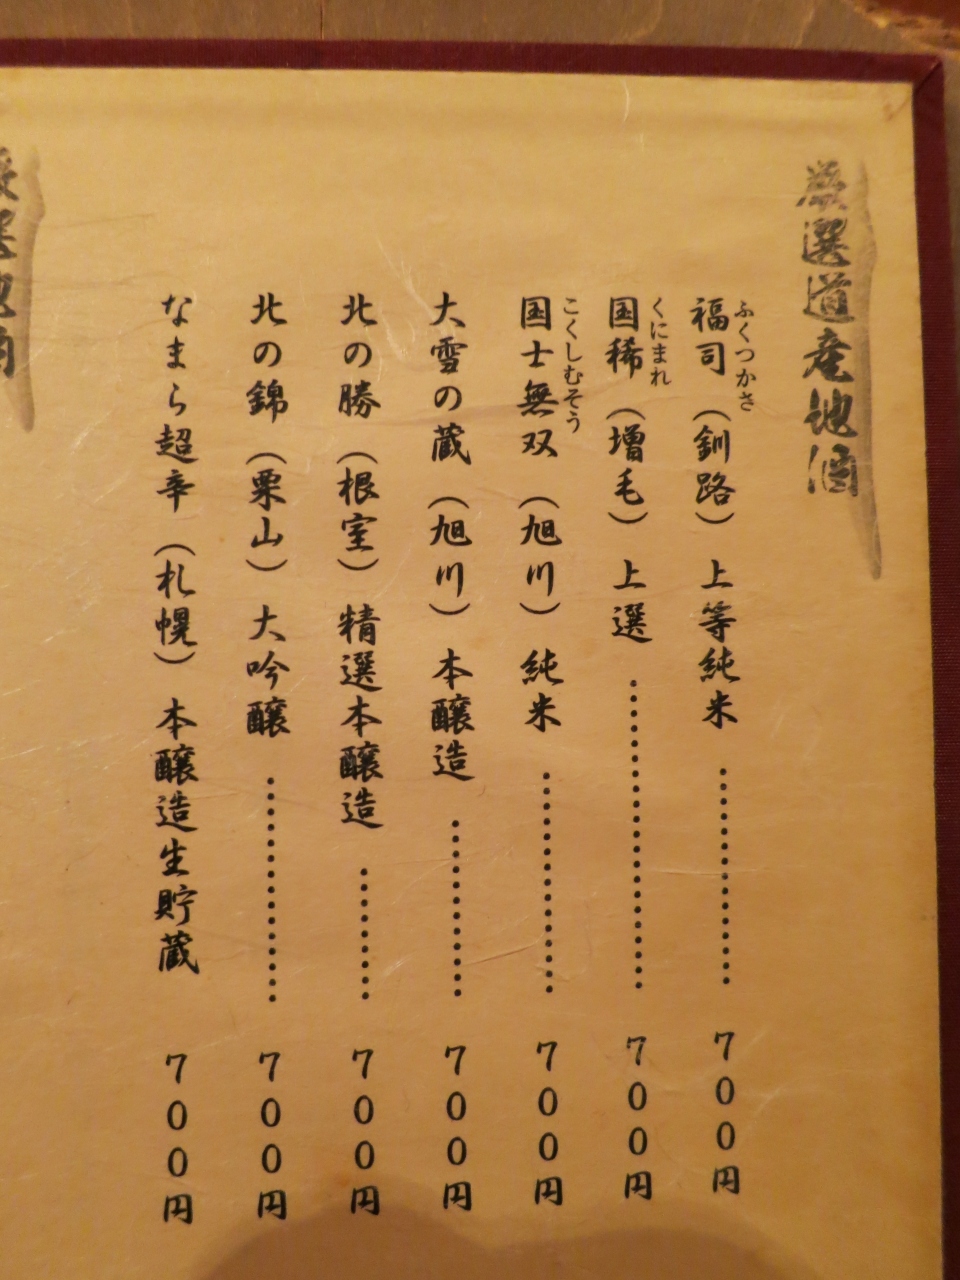 厳選道産地酒
ふくつかさ
福司（釧路）上等純米…………… 700円
くにまれ
国稀（増毛）上選………………… 700円
こくしむそう
国士無双（旭川）純米…………… 700円
大雪の蔵（旭川）本醸造………… 700円
北の勝（根室）精選本醸造……… 700円
北の錦（栗山）大吟醸…………… 700円
なまら超辛（札幌）本醸造生貯蔵 700円
厳選地酒